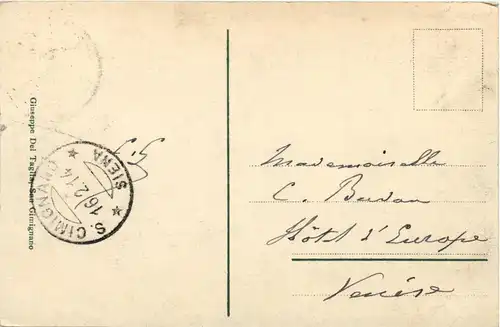 Giuseppe Del Taglia, San Gimignano
S. GIMIGNANO
* SIENA *
16.2.14
Mademoiselle
C.
Hôtel d'Europe
Venise